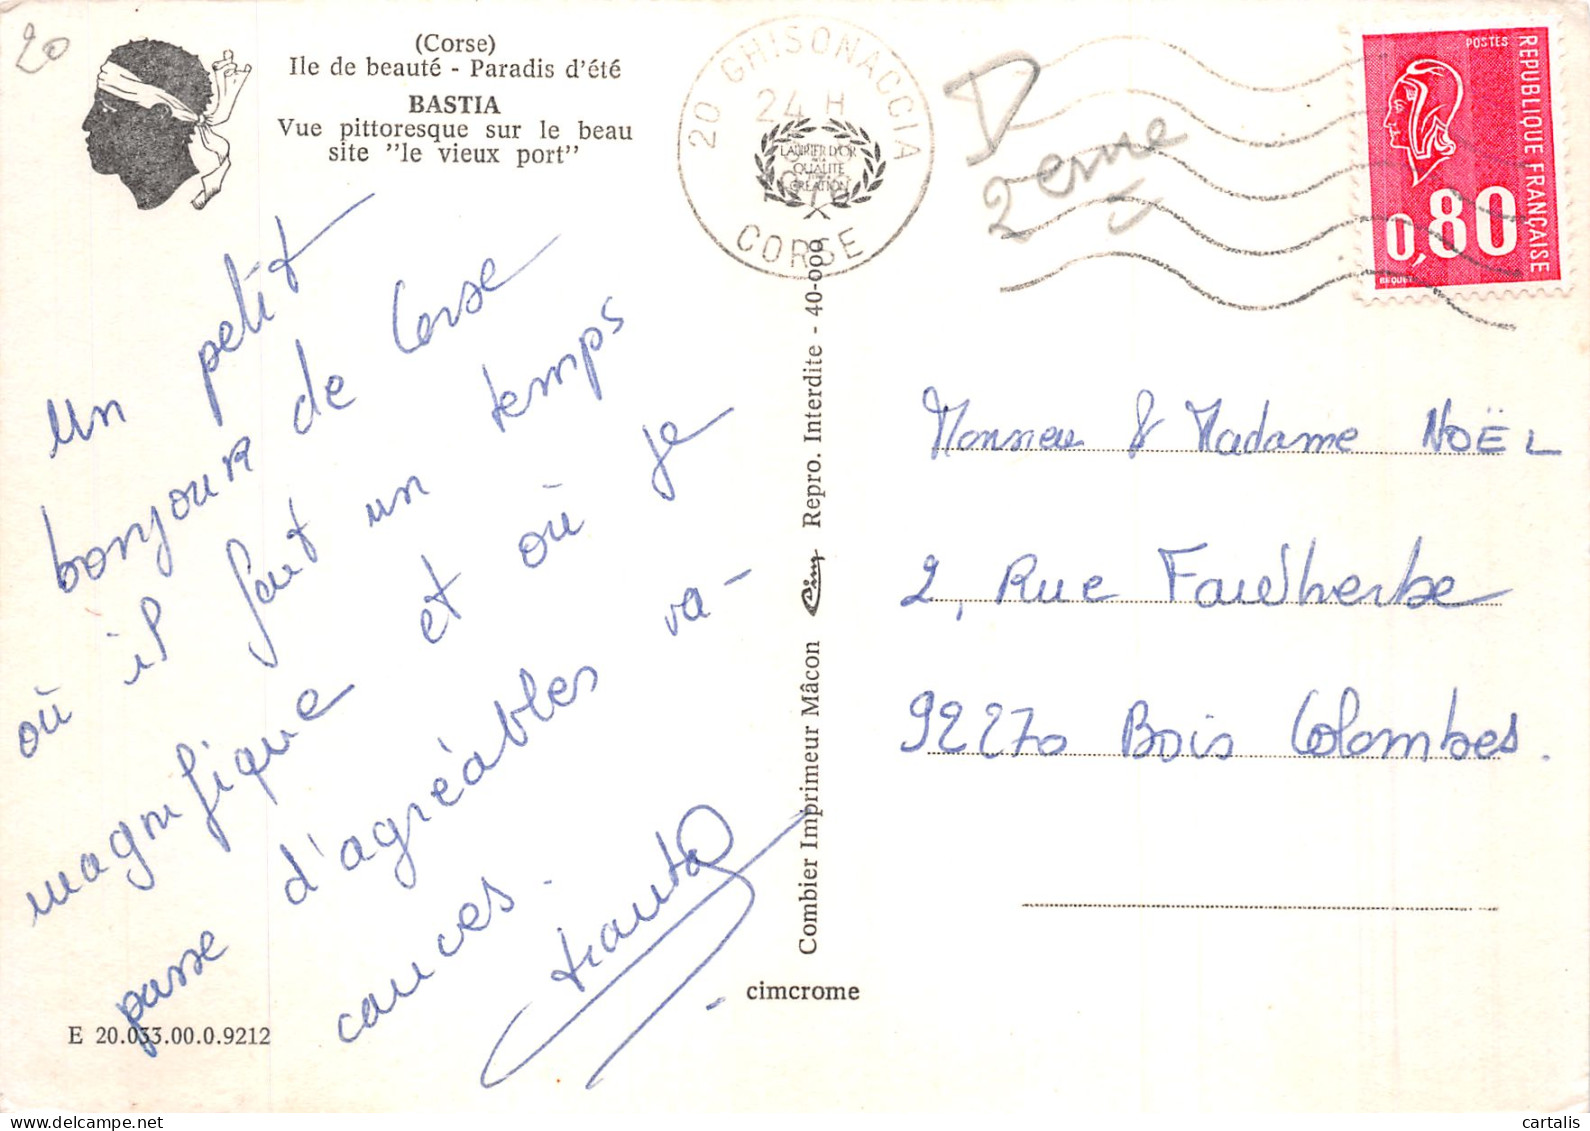 20
(Corse)
Ile de beauté - Paradis d'été
BASTIA
Vue pittoresque sur le beau
site "le vieux port"
Un petit
bonjour de Corse
où il fait un temps
magnifique et où je
passe d'agréables va-
cances.
E 20.033.00.0.9212
20 GHISONACCIA
24 H
CORSE
LAURIER D'OR
DE LA
QUALITÉ
CRÉATION
D
2eme
POSTES
REPUBLIQUE FRANÇAISE
0,80
BEQUET
Combier Imprimeur Mâcon Cim Repro. Interdite - 40-000
cimcrome
Monsieur & Madame NOËL
2, Rue Faidherbe
92270 Bois Colombes.
cartalis
delcampe.net